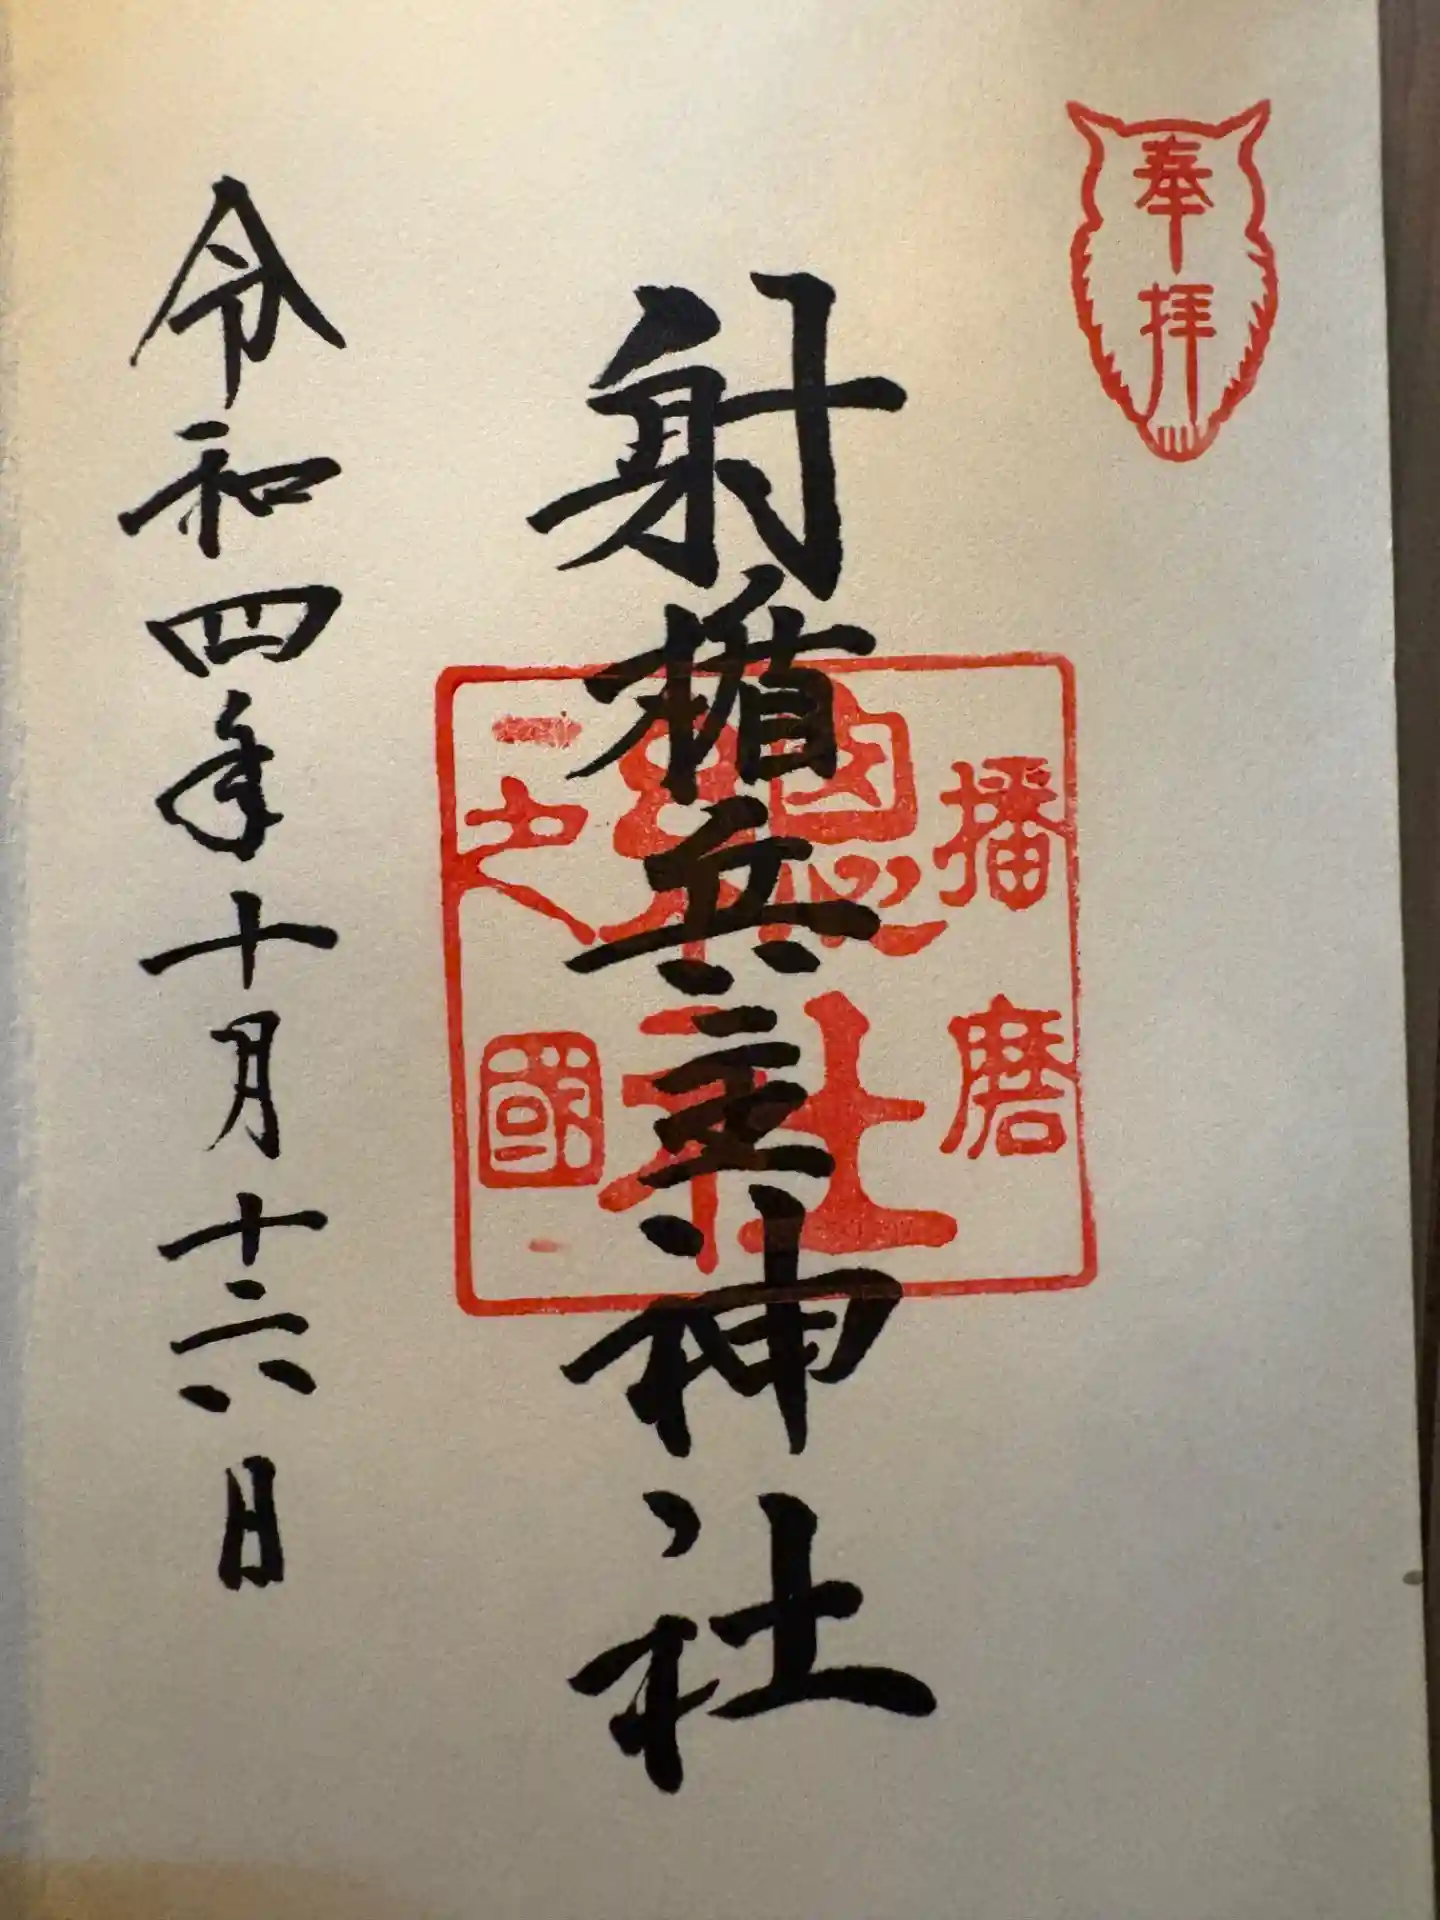 奉拝
射楯兵主神社
播磨
総社
之國
令和四年十月十六日